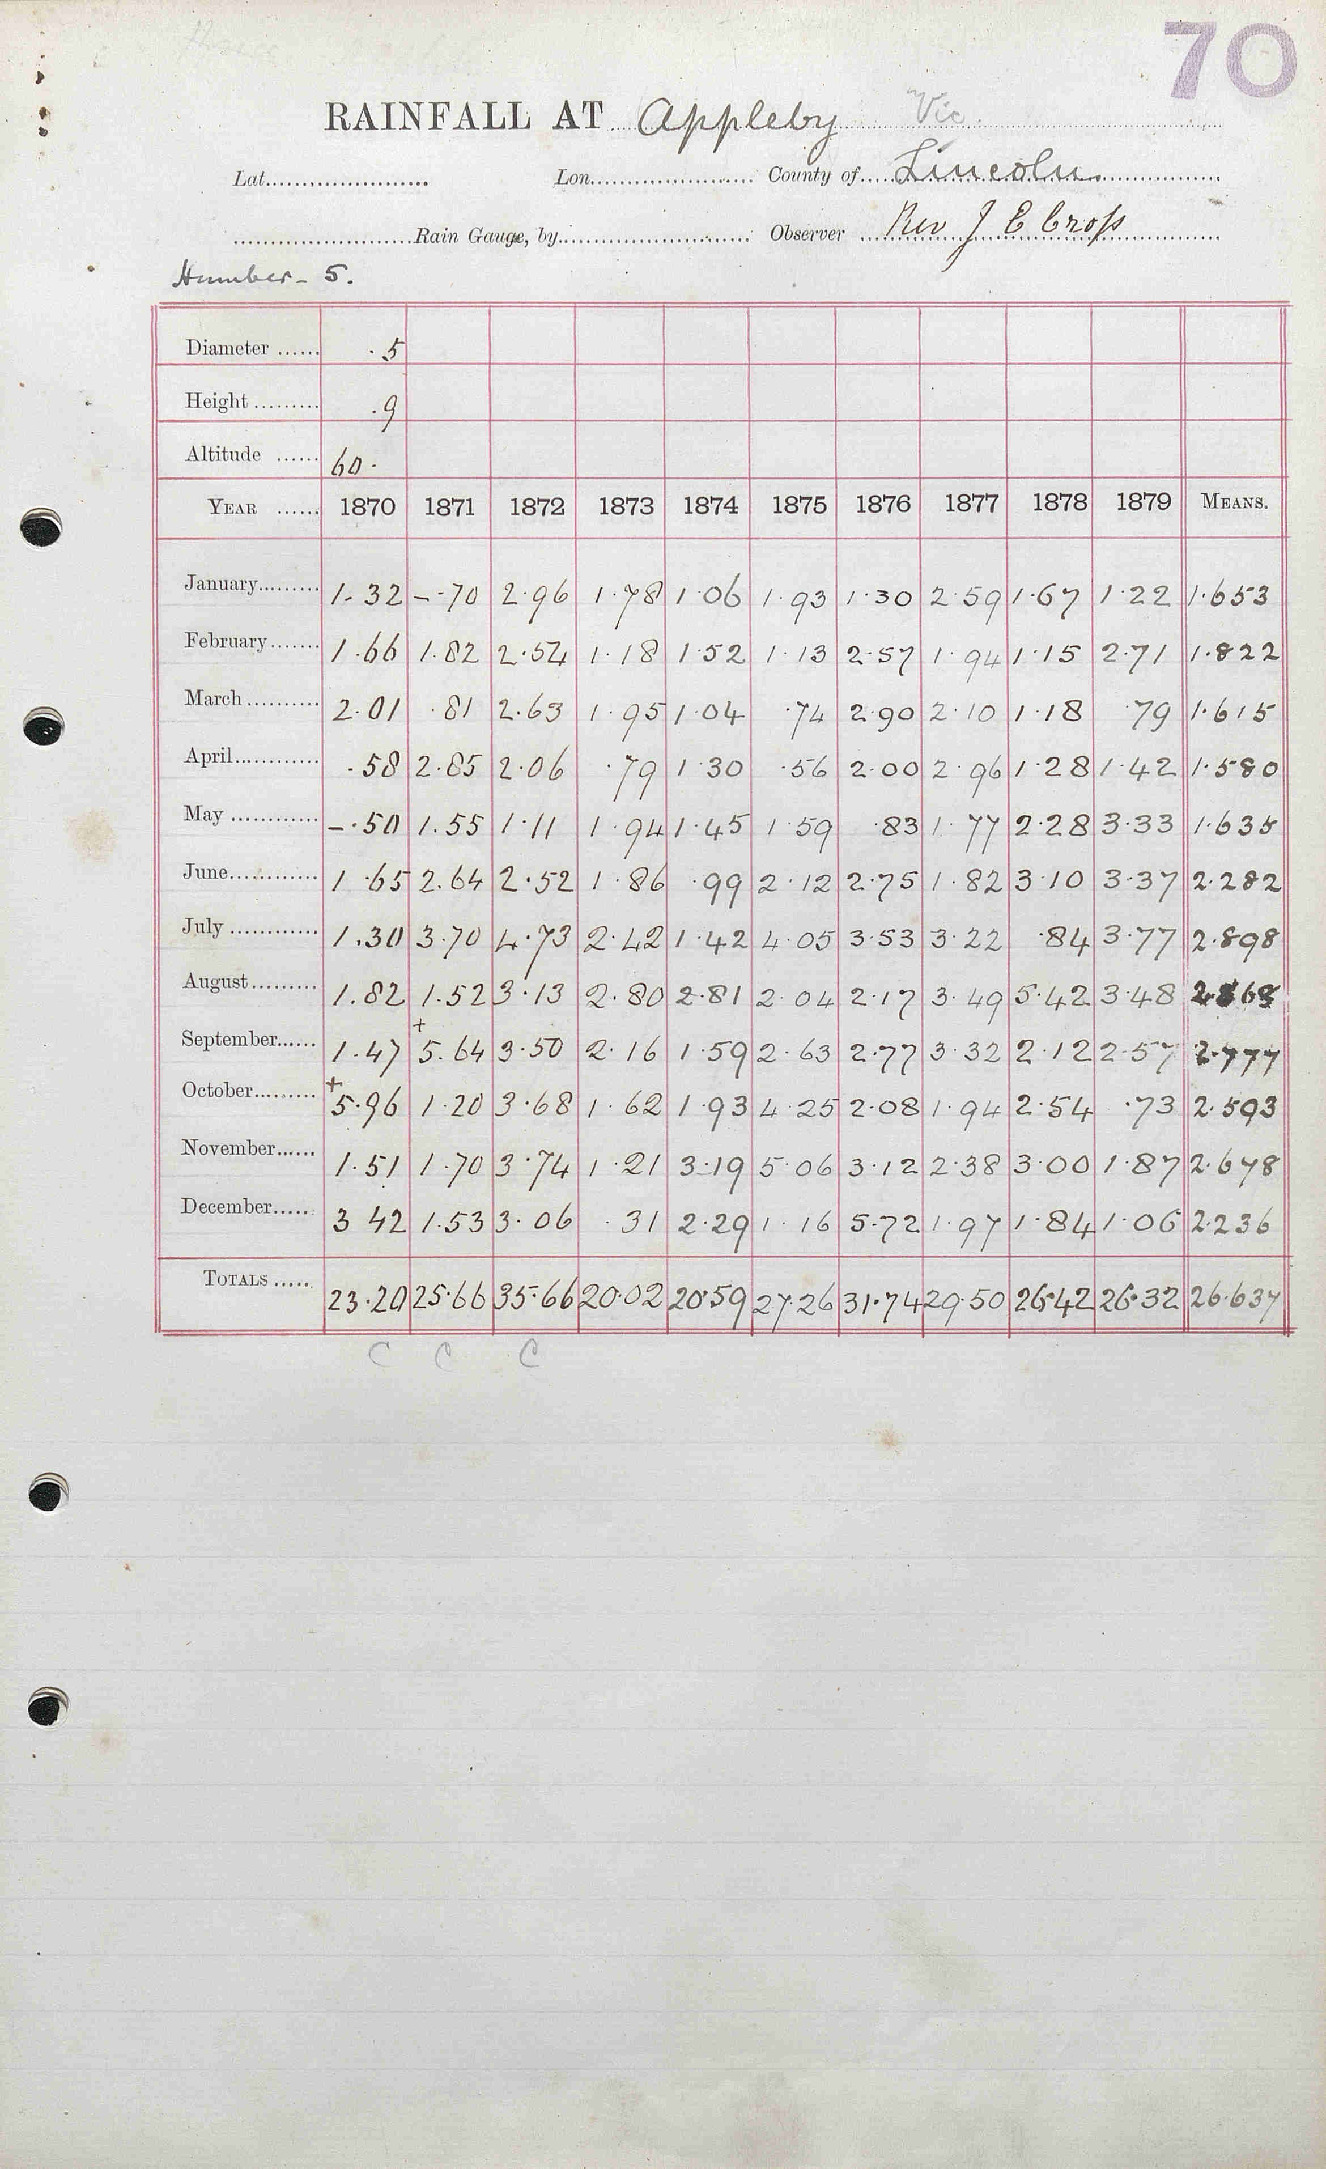 70
RAINFALL AT Appleby Vic.
Lat. Lon. County of Lincoln.
Rain Gauge, by Observer Rev J E Cross
Humber - 5.
Diameter ...... .5
Height ......... .9
Altitude ...... 60.
YEAR ...... 1870 1871 1872 1873 1874 1875 1876 1877 1878 1879 MEANS.
January......... 1.32 -.70 2.96 1.78 1.06 1.93 1.30 2.59 1.67 1.22 1.653
February....... 1.66 1.82 2.54 1.18 1.52 1.13 2.57 1.94 1.15 2.71 1.822
March .......... 2.01 .81 2.63 1.95 1.04 .74 2.90 2.10 1.18 .79 1.615
April............ .58 2.85 2.06 .79 1.30 .56 2.00 2.96 1.28 1.42 1.580
May ............ -.50 1.55 1.11 1.94 1.45 1.59 .83 1.77 2.28 3.33 1.635
June............ 1.65 2.64 2.52 1.86 .99 2.12 2.75 1.82 3.10 3.37 2.282
July ............ 1.30 3.70 4.73 2.42 1.42 4.05 3.53 3.22 .84 3.77 2.898
August......... 1.82 1.52 3.13 2.80 2.81 2.04 2.17 3.49 5.42 3.48 2.868
September...... 1.47 +5.64 3.50 2.16 1.59 2.63 2.77 3.32 2.12 2.57 2.777
October......... +5.96 1.20 3.68 1.62 1.93 4.25 2.08 1.94 2.54 .73 2.593
November...... 1.51 1.70 3.74 1.21 3.19 5.06 3.12 2.38 3.00 1.87 2.678
December..... 3 42 1.53 3.06 .31 2.29 1.16 5.72 1.97 1.84 1.06 2.236
TOTALS ..... 23.20 25.66 35.66 20.02 20.59 27.26 31.74 29.50 26.42 26.32 26.637
C C C